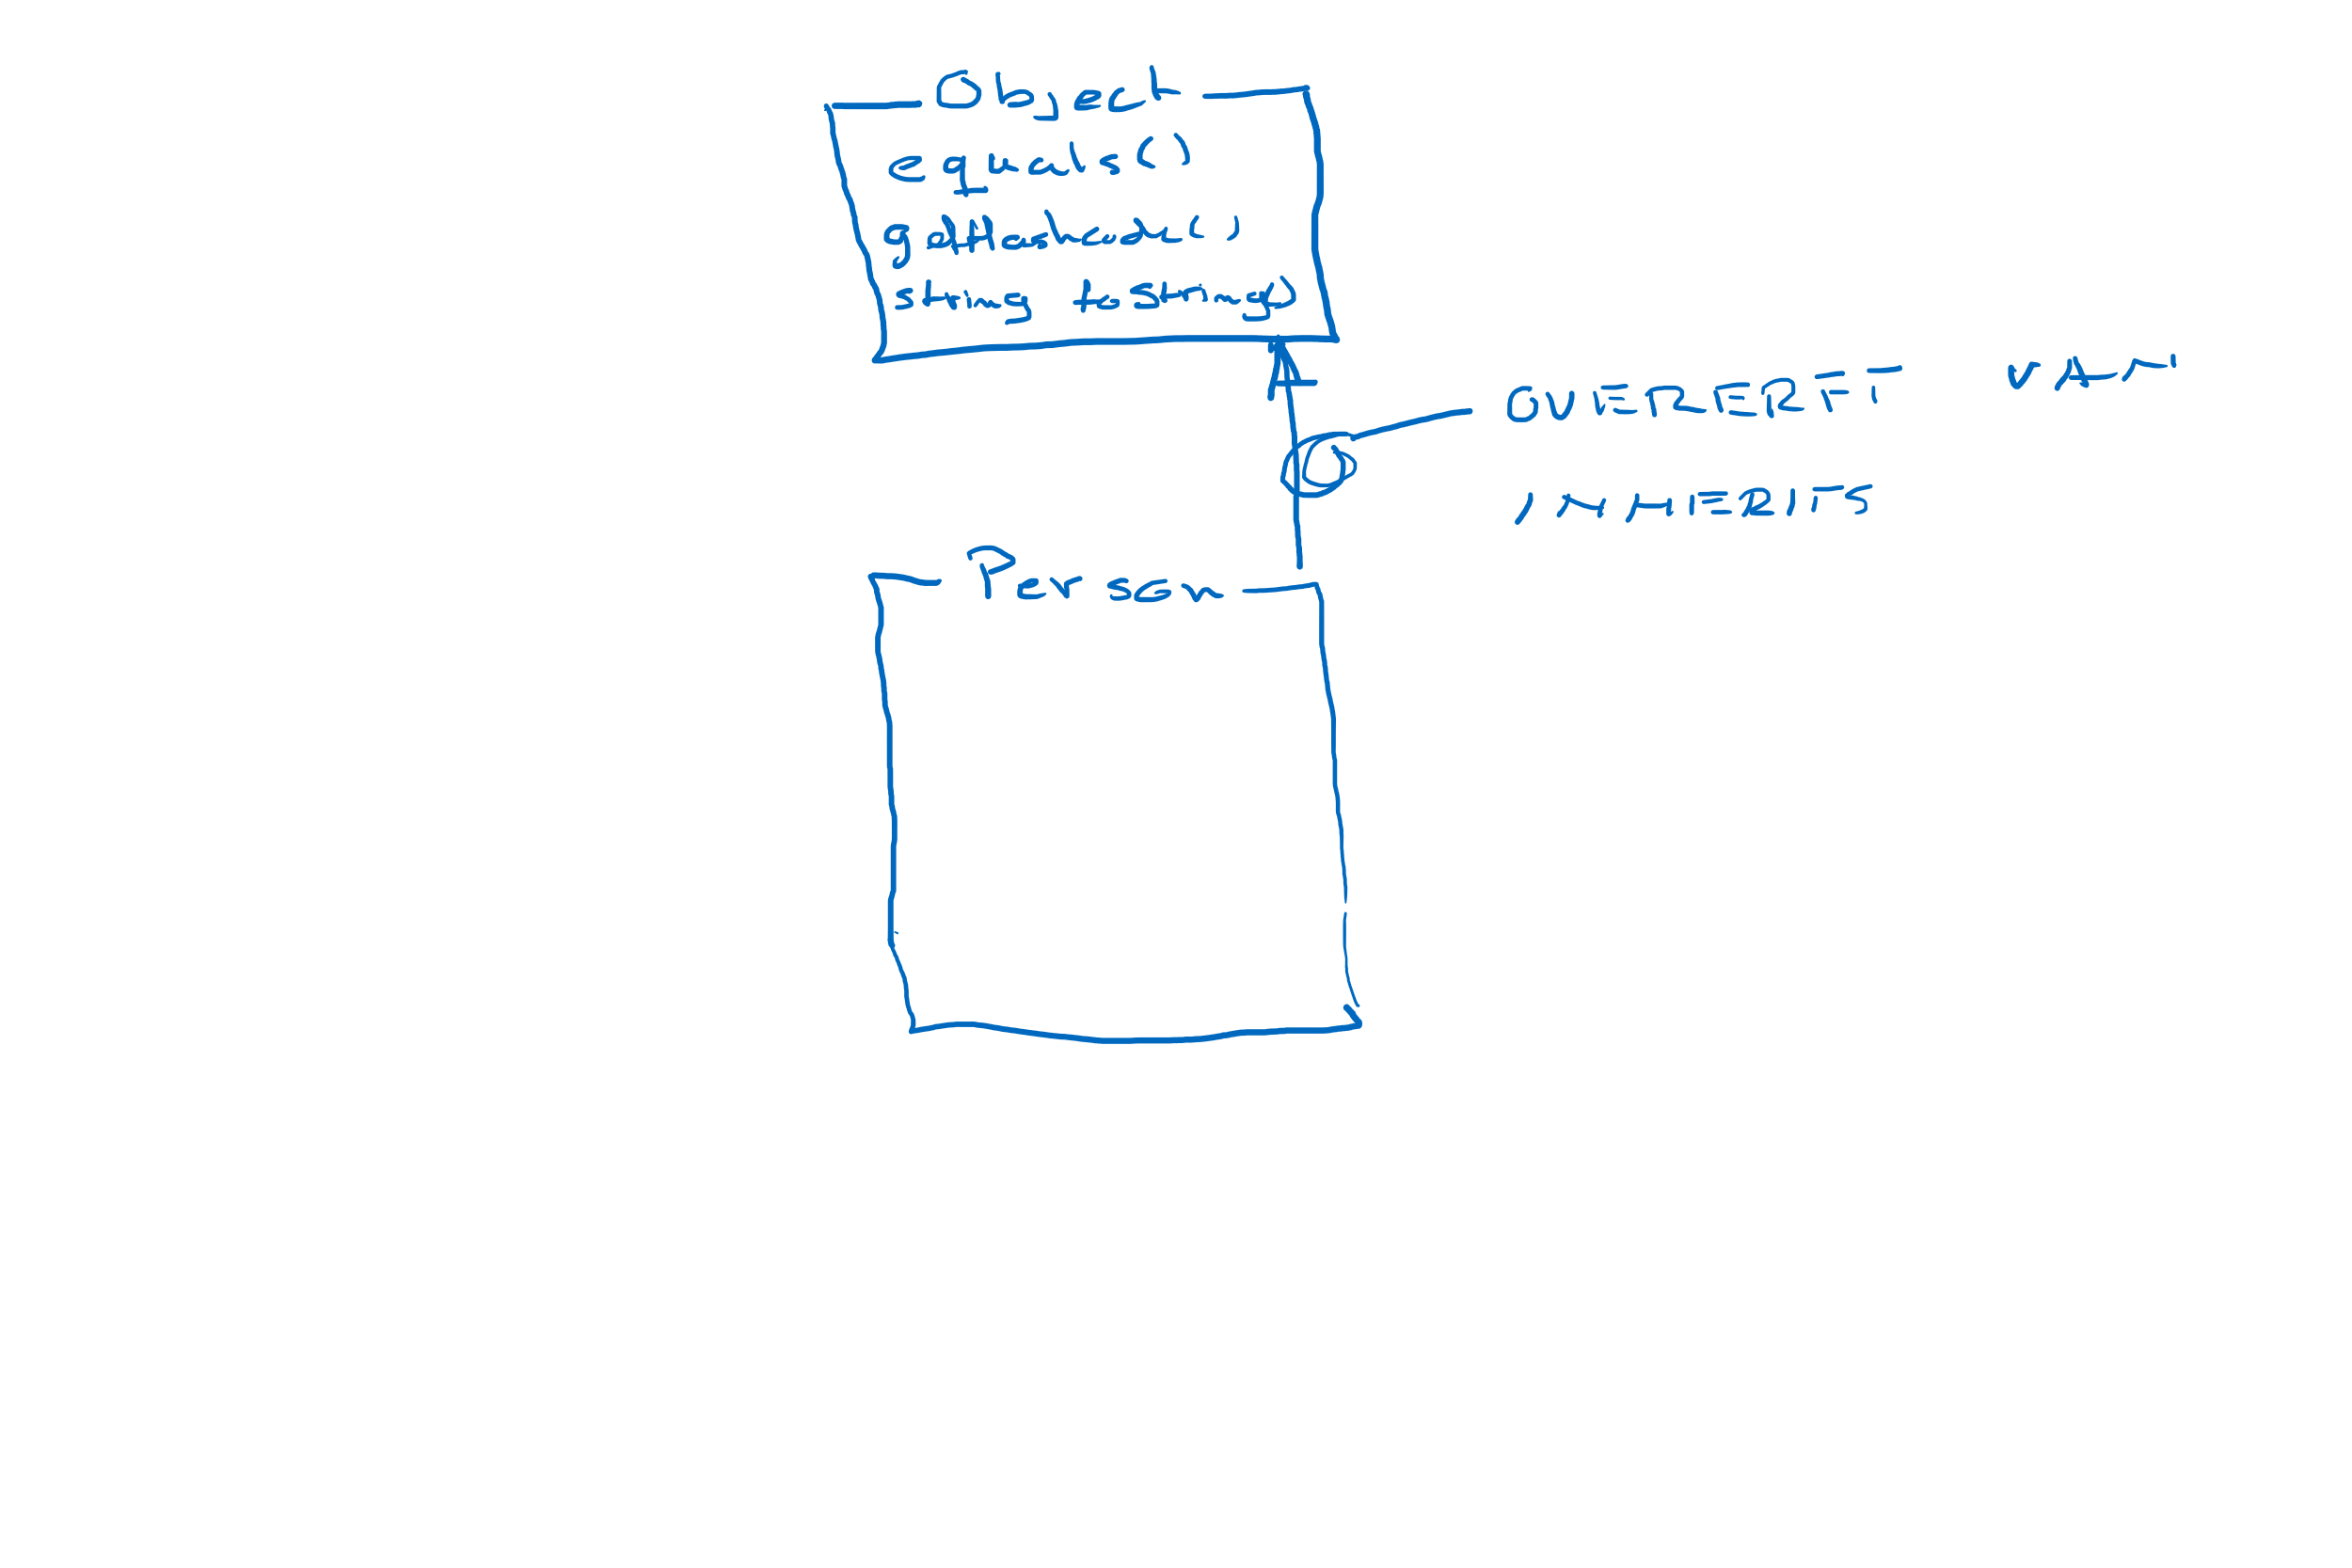 Object
equals()
getHashCode()
string toString()
OVERERFT VAN
INHERITS
Person